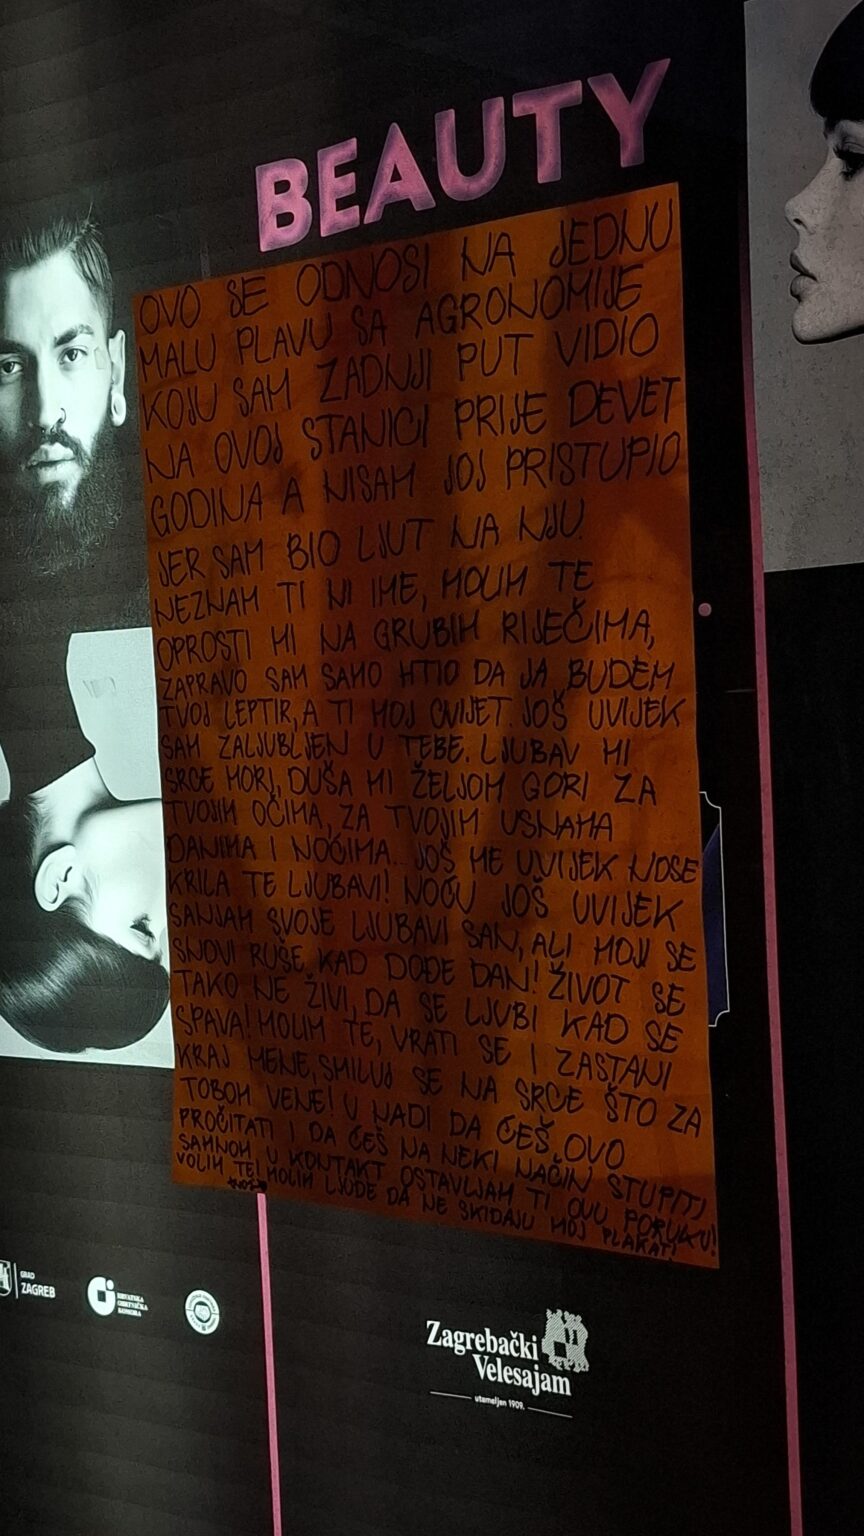 BEAUTY
OVO SE ODNOSI NA JEDNU
MALU PLAVU SA AGRONOMIJE
KOJU SAM ZADNJI PUT VIDIO
NA OVOJ STANICI PRIJE DEVET
GODINA A NISAM JOJ PRISTUPIO
JER SAM BIO LJUT NA NJU.
NEZNAM TI NI IME, MOLIM TE
OPROSTI MI NA GRUBIM RIJEČIMA,
ZAPRAVO SAM SAMO HTIO DA JA BUDEM
TVOJ LEPTIR, A TI MOJ CVIJET. JOŠ UVIJEK
SAM ZALJUBLJEN U TEBE. LJUBAV MI
SRCE MORI, DUŠA MI ŽELJOM GORI ZA
TVOJIM OČIMA, ZA TVOJIM USNAMA
DANIMA I NOĆIMA. JOŠ ME UVIJEK NOSE
KRILA TE LJUBAVI! NOĆU JOŠ UVIJEK
SANJAM SVOJE LJUBAVI SAN, ALI MOJI SE
SNOVI RUŠE KAD DOĐE DAN! ŽIVOT SE
TAKO NE ŽIVI, DA SE LJUBI KAD SE
SPAVA! MOLIM TE, VRATI SE I ZASTANI
KRAJ MENE, SMILUJ SE NA SRCE ŠTO ZA
TOBOM VENE! U NADI DA ĆEŠ OVO
PROČITATI I DA ĆEŠ NA NEKI NAČIN STUPITI
SAMNOM U KONTAKT OSTAVLJAM TI OVU PORUKU!
VOLIM TE! MOLIM LJUDE DA NE SKIDAJU MOJ PLAKAT!
GRAD
ZAGREB
HRVATSKA
OBRTNIČKA
KOMORA
Zagrebački
Velesajam
utemeljen 1909.